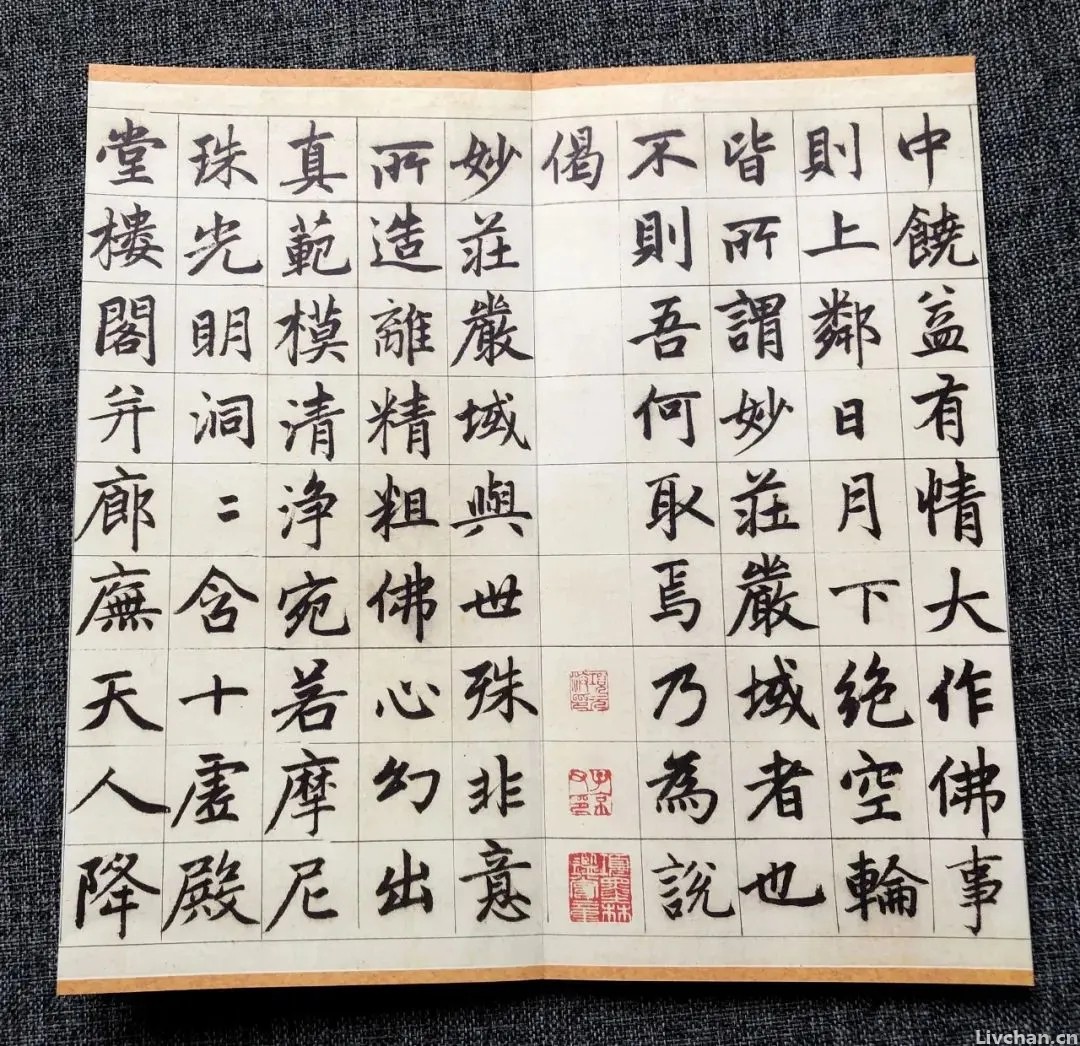 中饒益有情大作佛事
則上鄰日月下絶空輪
皆所謂妙莊嚴域者也
不則吾何取焉乃為說
偈
妙莊嚴域與世殊非意
所造離精粗佛心幻出
真範模清淨宛若摩尼
珠光明洞二含十虛殿
堂樓閣并廊廡天人降
Livchan.cn